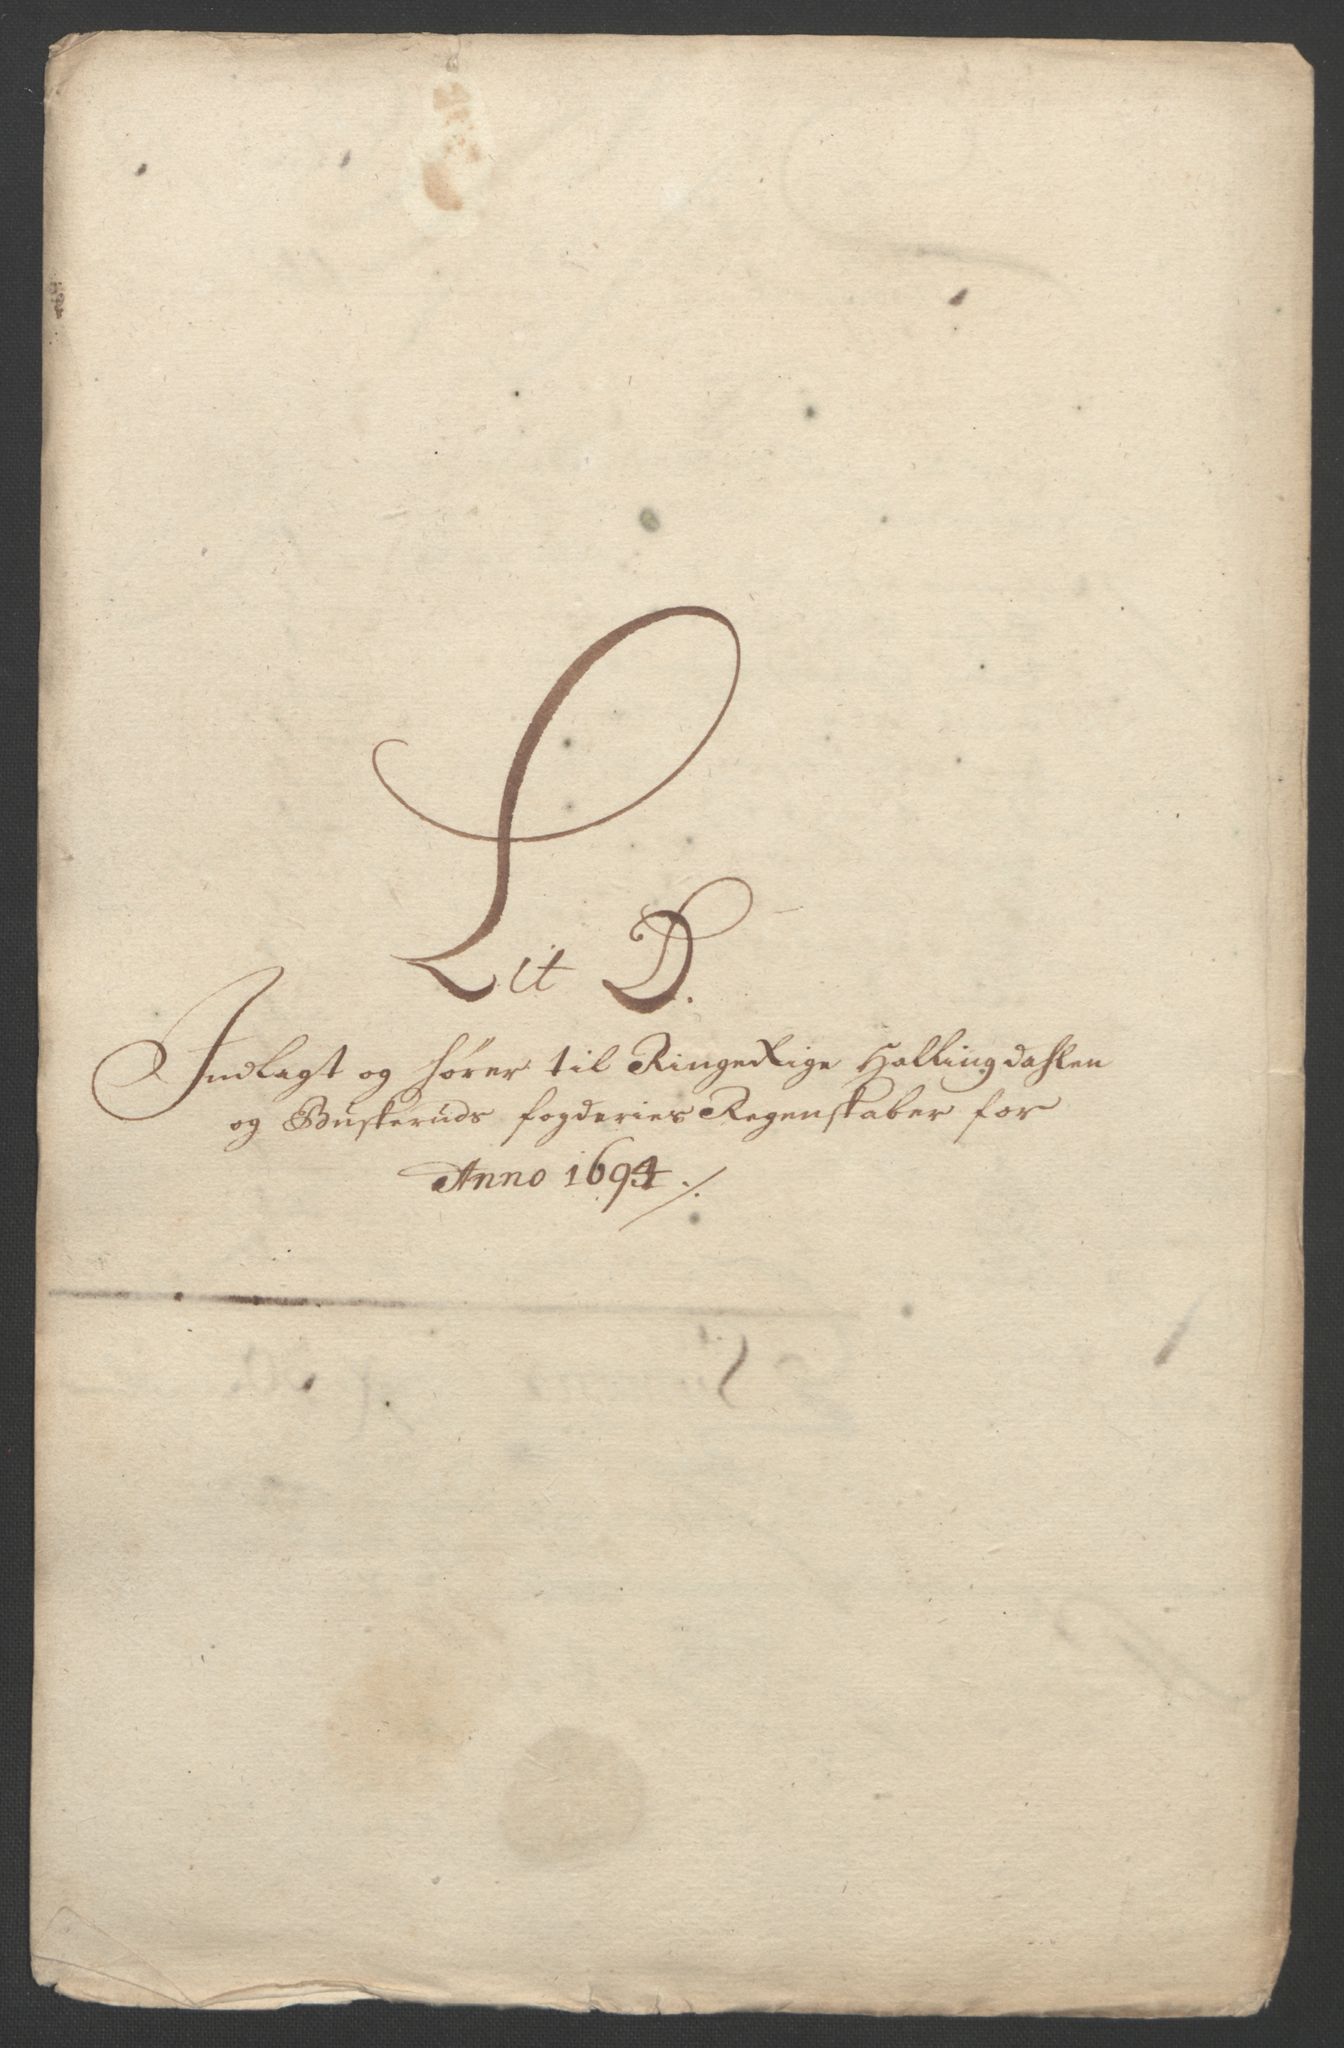 Lit D.
Indlagt og hører til Ringerige Hallingdahlen
og Buskeruds fogderies Regenskaber for
Anno 1694 ./.